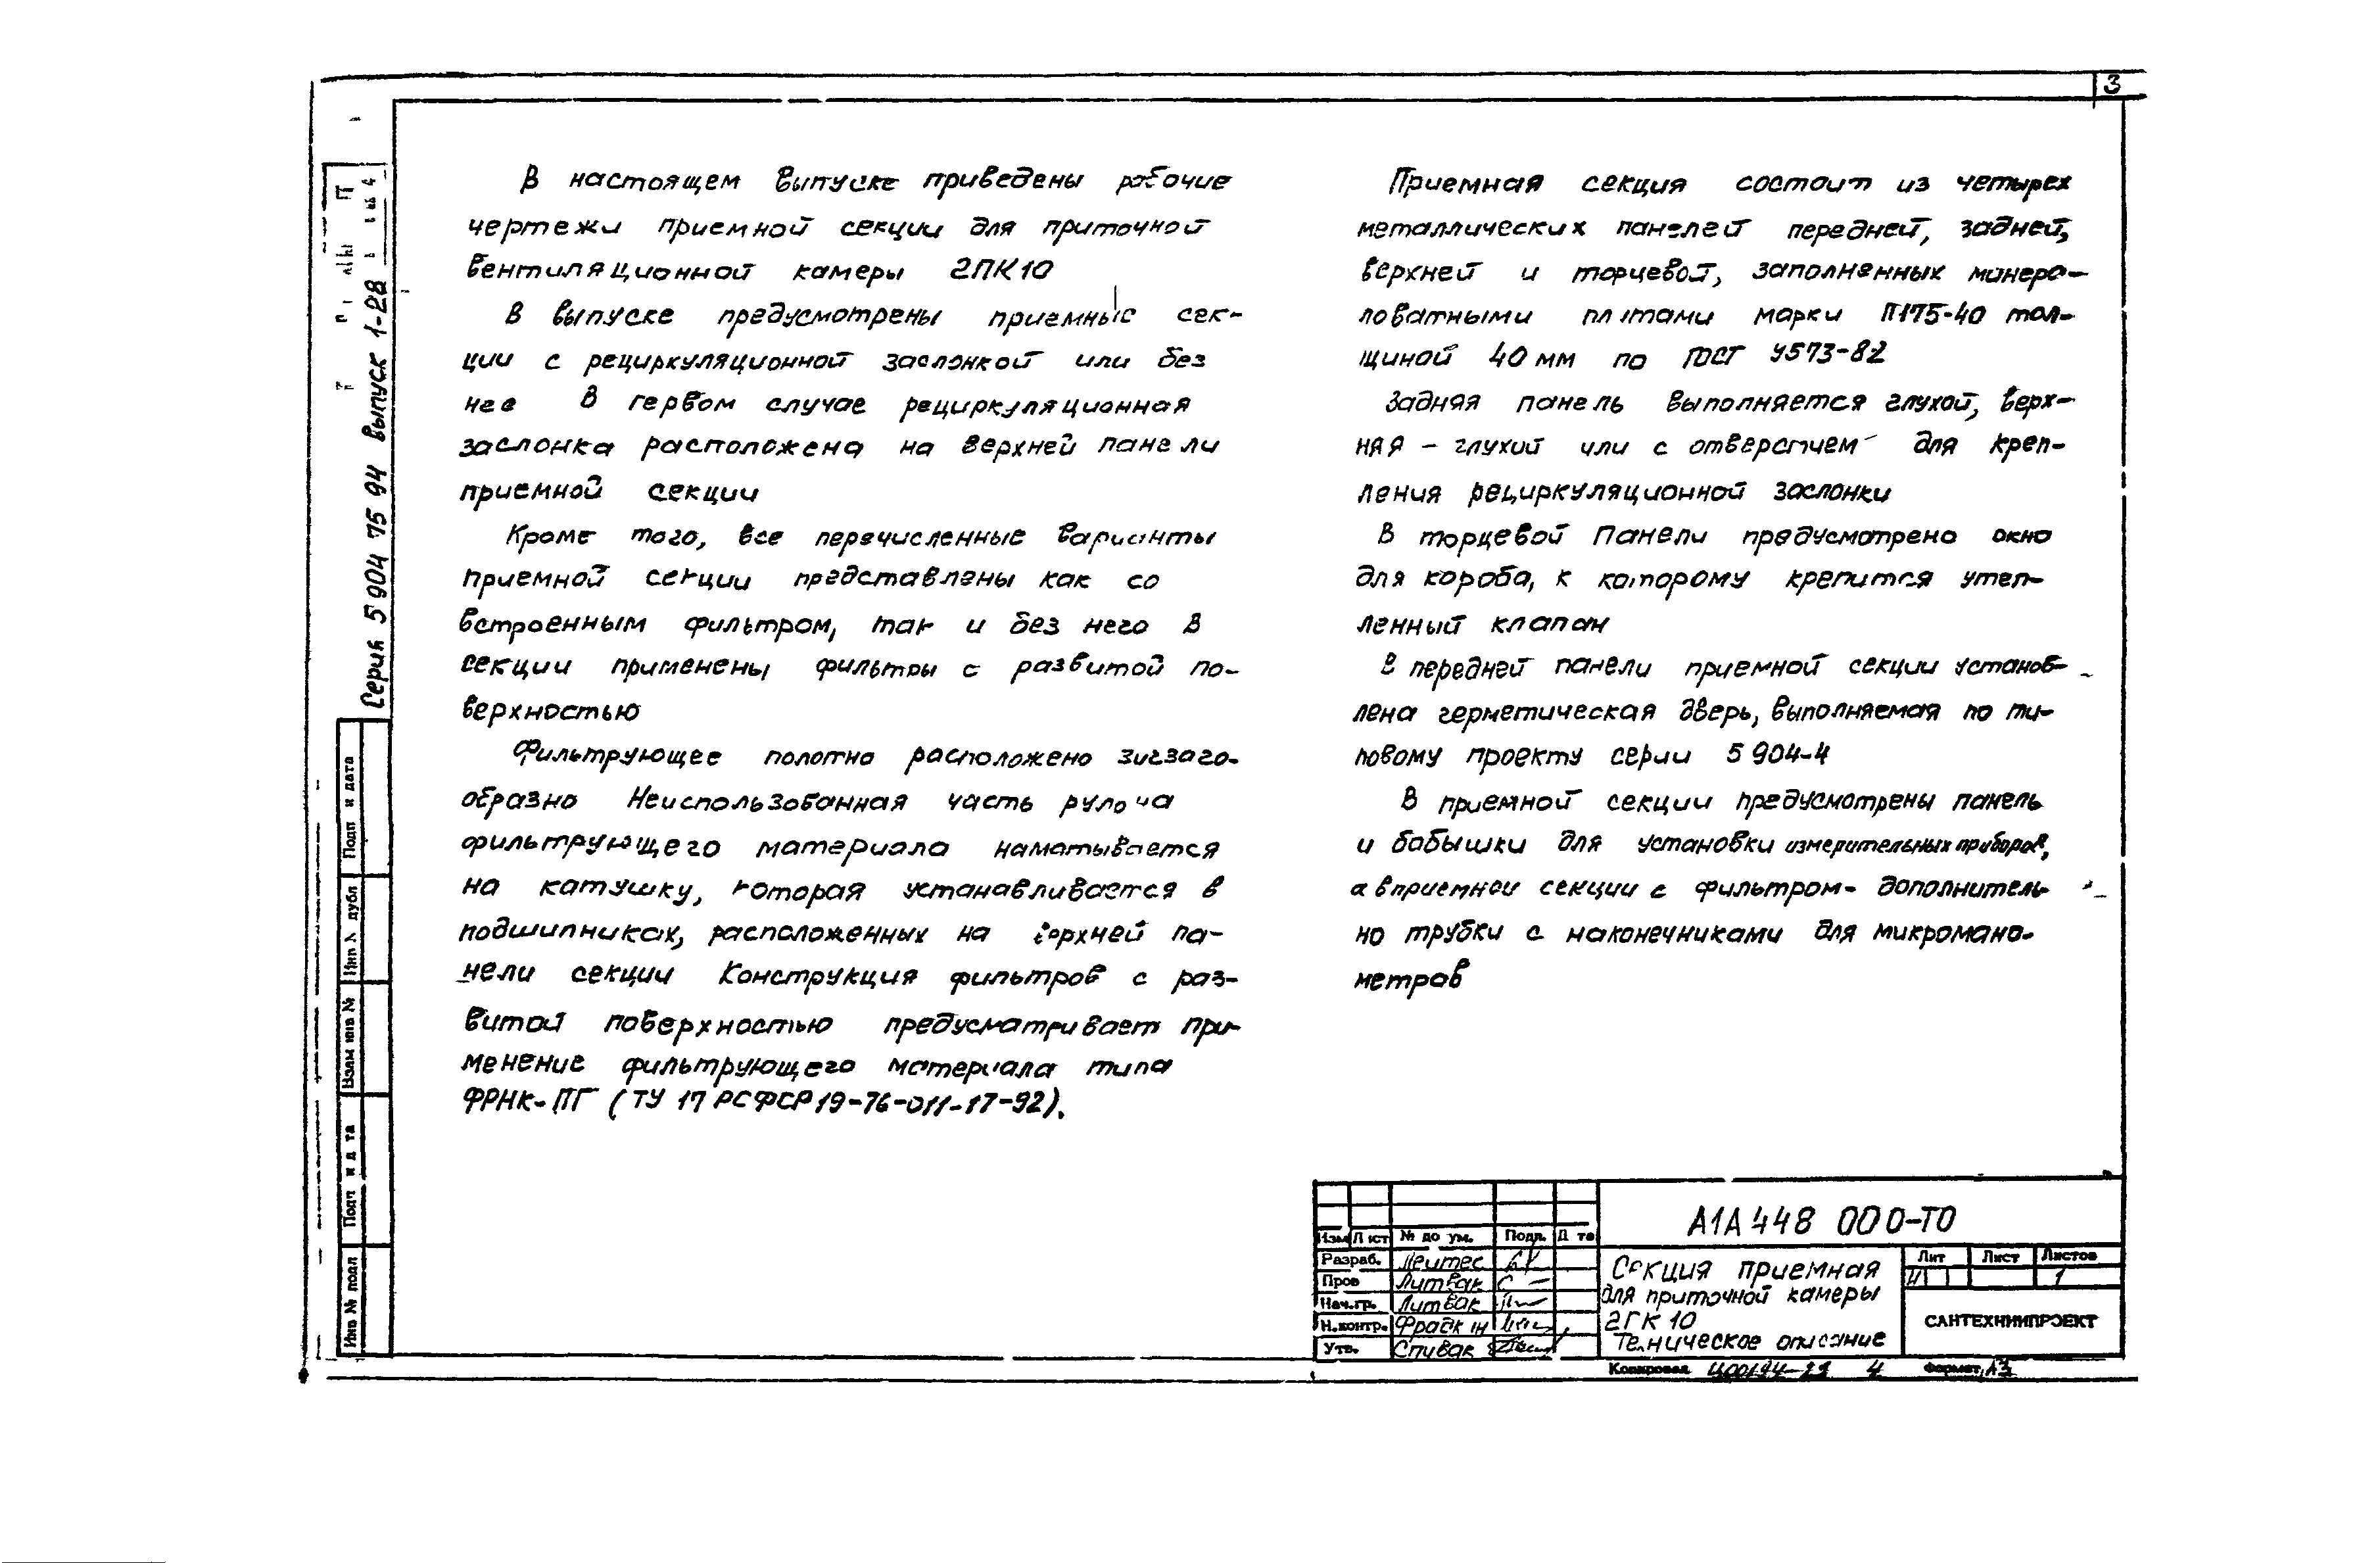 3
В настоящем выпуске приведены рабочие
чертежи приемной секции для приточной
вентиляционной камеры 2ПК10
В выпуске предусмотрены приемные сек-
ции с рециркуляционной заслонкой или без
нее В первом случае рециркуляционная
заслонка расположена на верхней панели
приемной секции
Кроме того, все перечисленные варианты
приемной секции представлены как со
встроенным фильтром, так и без него В
секции применены фильтры с развитой по-
верхностью
Фильтрующее полотно расположено зигзаго-
образно Неиспользованная часть рулона
фильтрующего материала наматывается
на катушку, которая устанавливается в
подшипниках, расположенных на верхней па-
нели секции Конструкция фильтров с раз-
витой поверхностью предусматривает при-
менение фильтрующего материала типа
ФРНК-ПГ (ТУ 17 РСФСР 19-76-011-17-92).
Приемная секция состоит из четырех
металлических панелей передней, задней,
верхней и торцевой, заполненных минера-
ловатными плитами марки П175-40 тол-
щиной 40 мм по ГОСТ 9573-82
Задняя панель выполняется глухой, верх-
няя - глухой или с отверстием для креп-
ления рециркуляционной заслонки
В торцевой панели предусмотрено окно
для короба, к которому крепится утеп-
ленный клапан
В передней панели приемной секции установ-
лена герметическая дверь, выполняемая по ти-
повому проекту серии 5 904-4
В приемной секции предусмотрены панель
и бобышки для установки измерительных приборов,
а в приемной секции с фильтром- дополнитель
но трубки с наконечниками для микромано-
метров
Серия 5 904 75 94 выпуск 1-28
Подп и дата
Инв № дубл
Взам инв №
Подп и д та
Инв № подл
А1А448 000-ТО
Изм Л ст № до ум. Подп. Д та
Разраб. Лейтес
Пров Литвак
Нач.гр. Литвак
Н.контр. Фрадкин
Утв. Спивак
Секция приемная
для приточной камеры
2ПК 10
Техническое описание
Лит Лист Листов
И 1
САНТЕХНИИПРОЕКТ
Копировал Ц00194-29 4 Формат А3